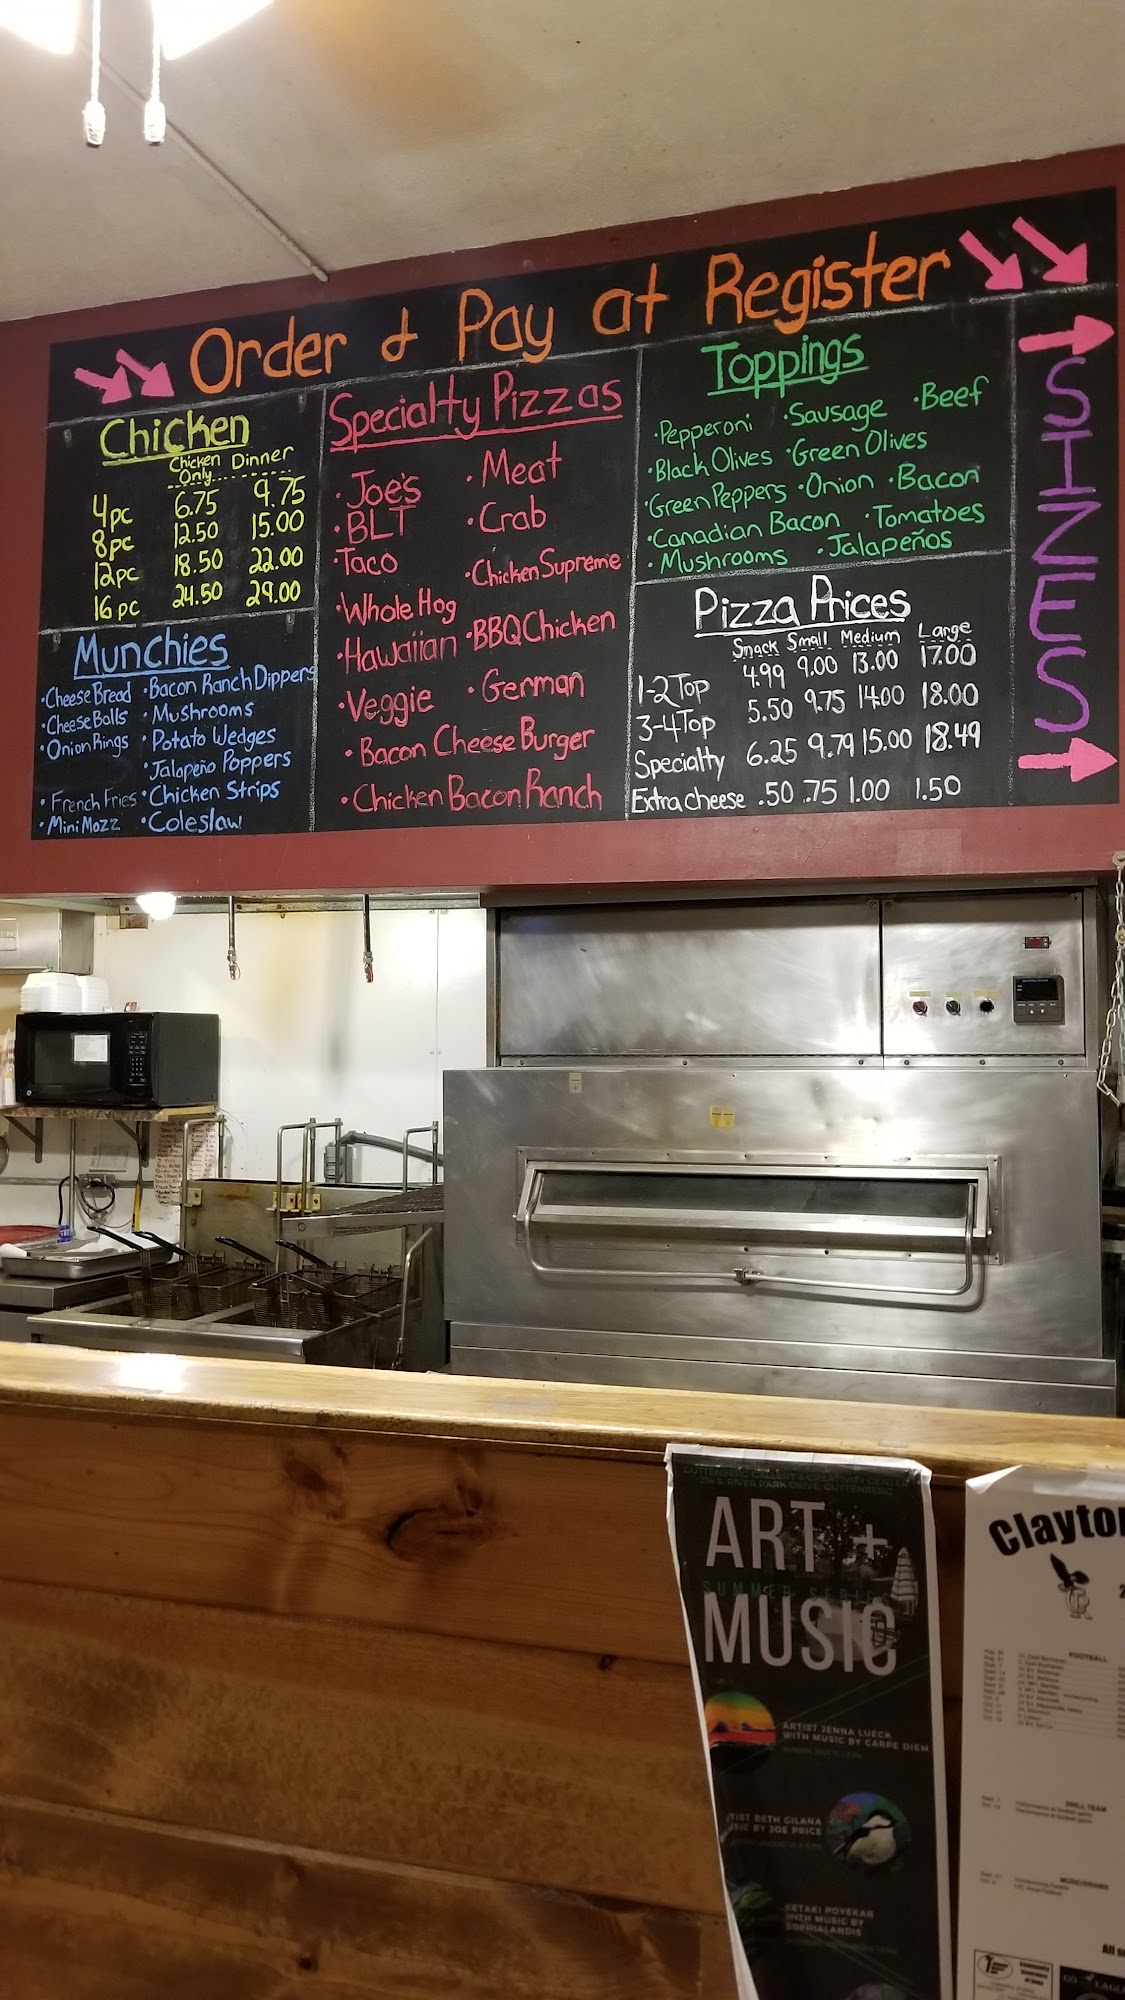 Order & Pay at Register
Chicken
Chicken Only Dinner
4pc 6.75 9.75
8pc 12.50 15.00
12pc 18.50 22.00
16pc 24.50 29.00
Munchies
•Cheese Bread •Bacon Ranch Dippers
•Cheese Balls •Mushrooms
•Onion Rings •Potato Wedges
•Jalapeño Poppers
•French Fries •Chicken Strips
•Mini Mozz •Coleslaw
Specialty Pizzas
•Joe's •Meat
•BLT •Crab
•Taco •Chicken Supreme
•Whole Hog
•Hawaiian •BBQ Chicken
•Veggie •German
•Bacon Cheese Burger
•Chicken Bacon Ranch
Toppings
•Pepperoni •Sausage •Beef
•Black Olives •Green Olives
•Green Peppers •Onion •Bacon
•Canadian Bacon •Tomatoes
•Mushrooms •Jalapeños
Pizza Prices
Snack Small Medium Large
1-2 Top 4.99 9.00 13.00 17.00
3-4 Top 5.50 9.75 14.00 18.00
Specialty 6.25 9.79 15.00 18.49
Extra cheese .50 .75 1.00 1.50
SIZES
GUTTENBERG GALLERY & CREATIVITY CENTER
RIVER PARK DRIVE, GUTTENBERG
ART +
SUMMER SERIES
MUSIC
ARTIST JENNA LUECK
WITH MUSIC BY CARPE DIEM
BETH GILANA
BY JOE PRICE
KETAKI POYEKAR
WITH MUSIC BY
SOPHIALANDIS
Clayto
FOOTBALL
DRILL TEAM
MUSIC/DRAMA
All
GO EAGL